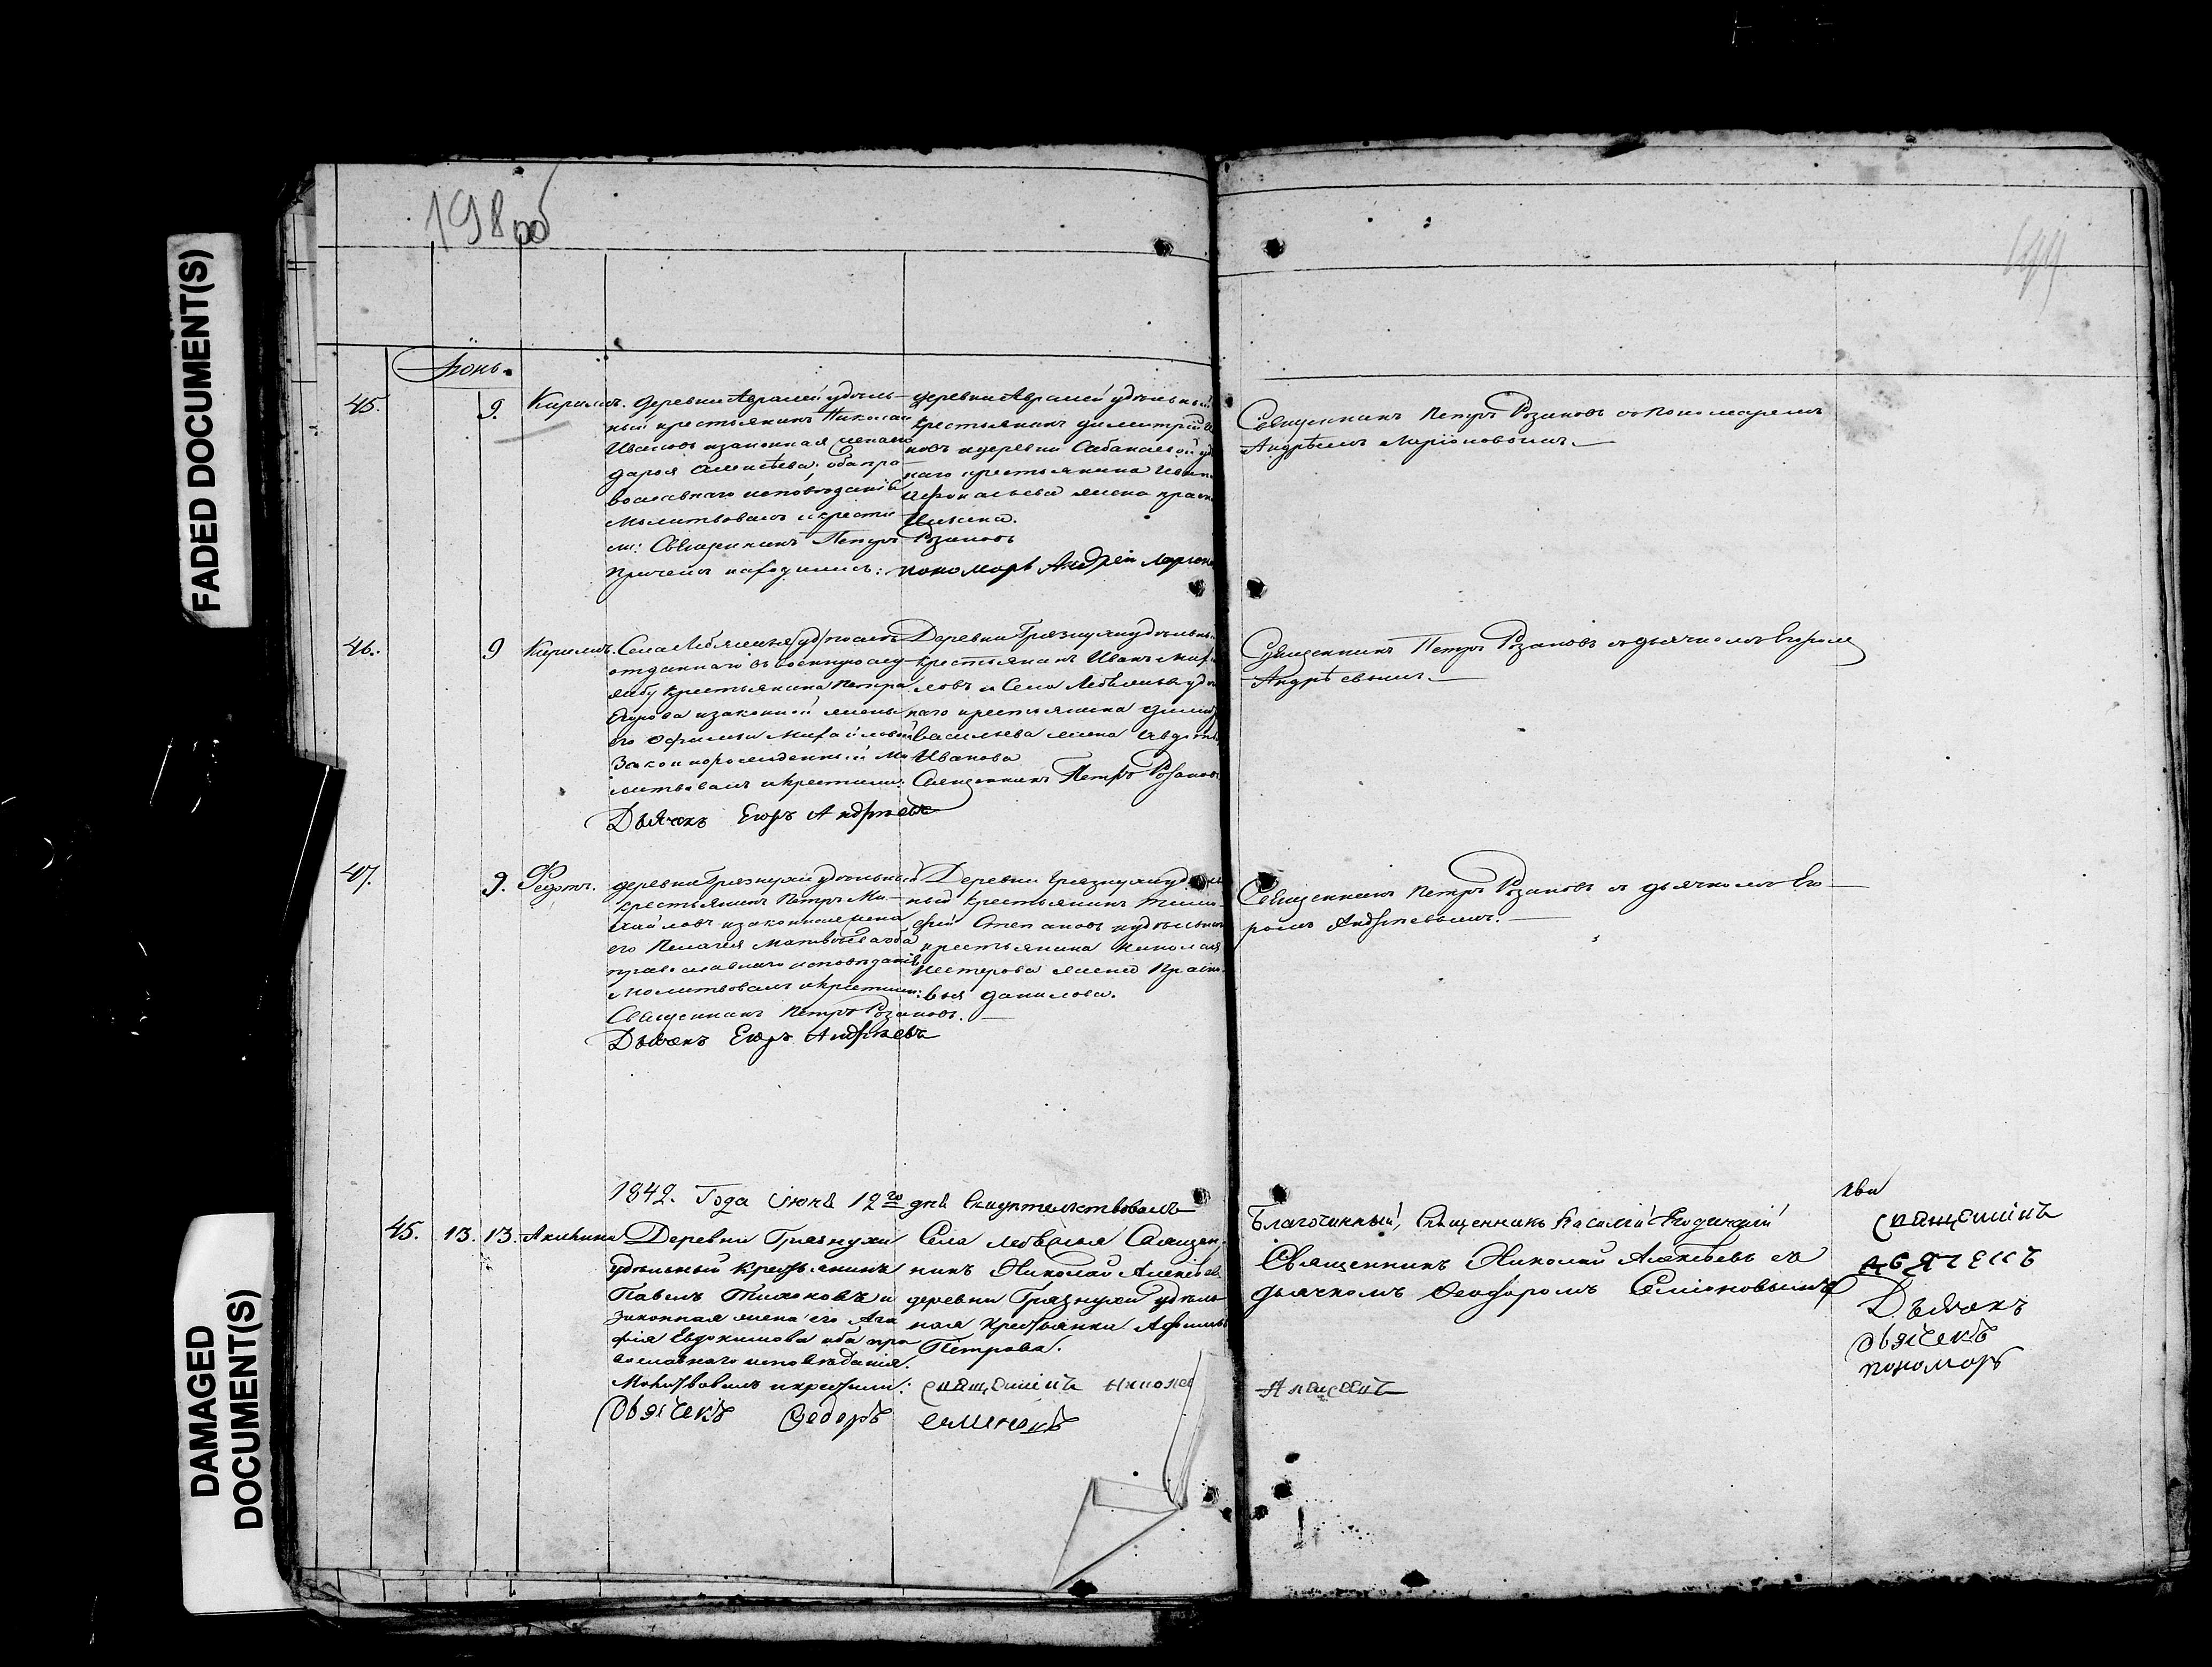 FADED DOCUMENT(S)
DAMAGED
DOCUMENT(S)
198об
199
Іюнь.
45. 9. Кириллъ.
деревни Авралей удѣль-
ный крестьянинъ Николай
Ивановъ и законная жена его
Дарья Алексѣева, оба пра-
вославнаго исповѣданія
Молитвовалъ и крести-
ли: Священникъ Петръ Розановъ
Причемъ находились: пономарь Андрей Ларіоно
деревни Авралей удѣльный
крестьянинъ Димитрій
новъ и деревни Сабакаевой уд
наго крестьянина Ивана
жена
Ильина.
Священникъ Петръ Розановъ со пономаремъ
Андрѣемъ Ларіоновымъ.
46. 9 Кириллъ.
Села Лебяжья (уд) послѣ
отданнаго въ военную слу-
жбу крестьянина Петра
Егорова и законной жены
его Офимьи Михайловой
Законнорожденный Мо
литвовалъ и крестили: Священникъ Петръ Розановъ
Дьячекъ Егоръ Андреевъ
Деревни Грязнухи удѣльный
крестьянинъ Иванъ Миха
ловъ и Села Лебяжья удѣ
наго крестьянина Димит
Васильева жена Авдоть
Иванова
Священникъ Петръ Розановъ и дьячкомъ Егоромъ
Андрѣевымъ.
47. 9. Федотъ.
деревни Грязнухи удѣльный
крестьянинъ Петръ Ми-
хайловъ и законная жена
его Пелагея Матвѣева оба
православнаго исповѣданія
Молитвовалъ и крестили:
Священникъ Петръ Розановъ.
Дьячекъ Егоръ Андреевъ
Деревни Грязнухи удѣль
ный крестьянинъ Тимо-
фей Степановъ и удѣльнаго
крестьянина Николая
Нестерова жена Праско-
вья Данилова.
Священникъ Петръ Розановъ и дьячкомъ Его-
ромъ Андреевымъ.
1842. Года Іюня 12го дня Свидѣтельствовалъ
Благочинный, Священникъ Василій
45. 13. 13. Акилина
Деревни Грязнухи
удѣльный крестьянинъ
Павелъ Тихоновъ и
законная жена его Ага
фія Евдокимова оба пра
вославнаго исповѣданія.
Молитвовалъ и крестили: священникъ николай
Алексеевъ
дьячекъ Федоръ семеновъ
Села Лебяжья Священ-
никъ Николай Алексѣевъ
деревни Грязнухи удѣль
ная крестьянка Афимья
Петрова.
Священникъ Николай Алексѣевъ съ
дьячкомъ Феодоромъ Семіоновымъ
священникъ
Дьячекъ
дьячекъ
пономарь